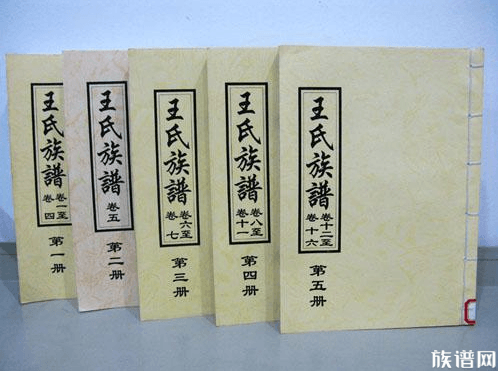 王氏族譜
卷一至
卷四
第一册
王氏族譜
卷五
第二册
王氏族譜
卷六至
卷七
第三册
王氏族譜
卷八至
卷十一
第四册
王氏族譜
卷十二至
卷十六
第五册
族谱网